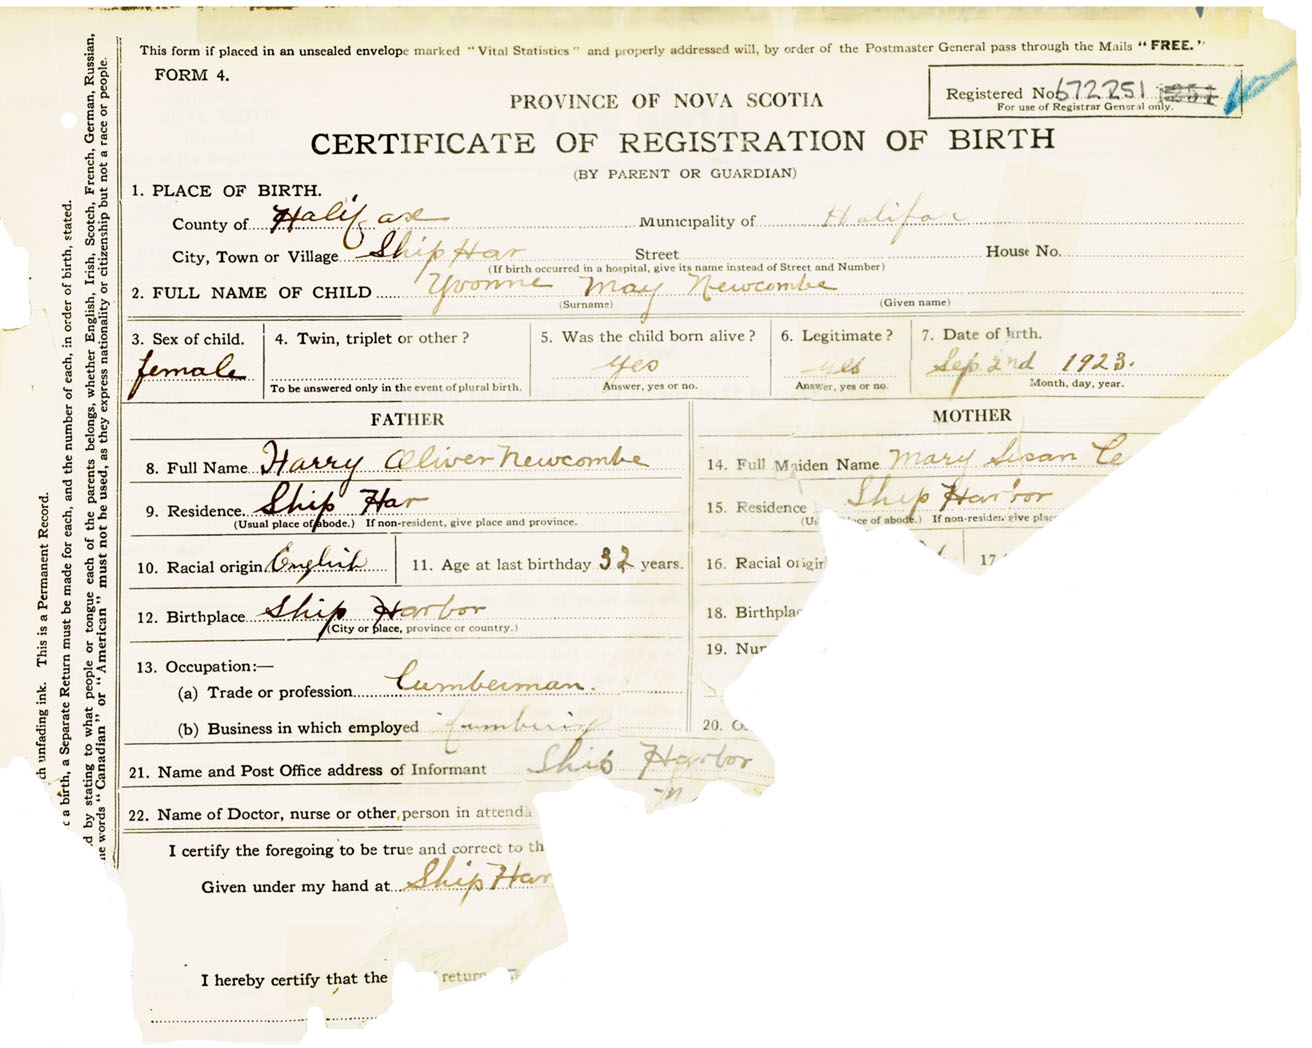 This form if placed in an unsealed envelope marked "Vital Statistics" and properly addressed will, by order of the Postmaster General pass through the Mails "FREE."
FORM 4.
Registered No 672251
For use of Registrar General only.
PROVINCE OF NOVA SCOTIA
CERTIFICATE OF REGISTRATION OF BIRTH
(BY PARENT OR GUARDIAN)
1. PLACE OF BIRTH.
County of Halifax Municipality of Halifax
City, Town or Village Ship Har Street House No.
(If birth occurred in a hospital, give its name instead of Street and Number)
2. FULL NAME OF CHILD Yvonne May Newcombe
(Surname) (Given name)
3. Sex of child. 4. Twin, triplet or other? 5. Was the child born alive? 6. Legitimate? 7. Date of birth.
female yes yes Sep 2nd 1923.
To be answered only in the event of plural birth. Answer, yes or no. Answer, yes or no. Month, day, year.
FATHER MOTHER
8. Full Name Harry Oliver Newcombe 14. Full Maiden Name Mary Susan
9. Residence Ship Har 15. Residence Ship Harbor
(Usual place of abode.) If non-resident, give place and province. ace of abode.) If non-resident give plac
10. Racial origin English 11. Age at last birthday 32 years. 16. Racial origin 17
12. Birthplace Ship Harbor 18. Birthplac
(City or place, province or country.)
19. Nur
13. Occupation:—
(a) Trade or profession Lumberman.
(b) Business in which employed Lumbering 20. O
21. Name and Post Office address of Informant Ship Harbor
22. Name of Doctor, nurse or other person in attenda
I certify the foregoing to be true and correct to th
Given under my hand at Ship Har
I hereby certify that the return
ch unfading ink. This is a Permanent Record.
a birth, a Separate Return must be made for each, and the number of each, in order of birth, stated.
d by stating to what people or tongue each of the parents belongs, whether English, Irish, Scotch, French, German, Russian,
he words "Canadian" or "American" must not be used, as they express nationality or citizenship but not a race or people.